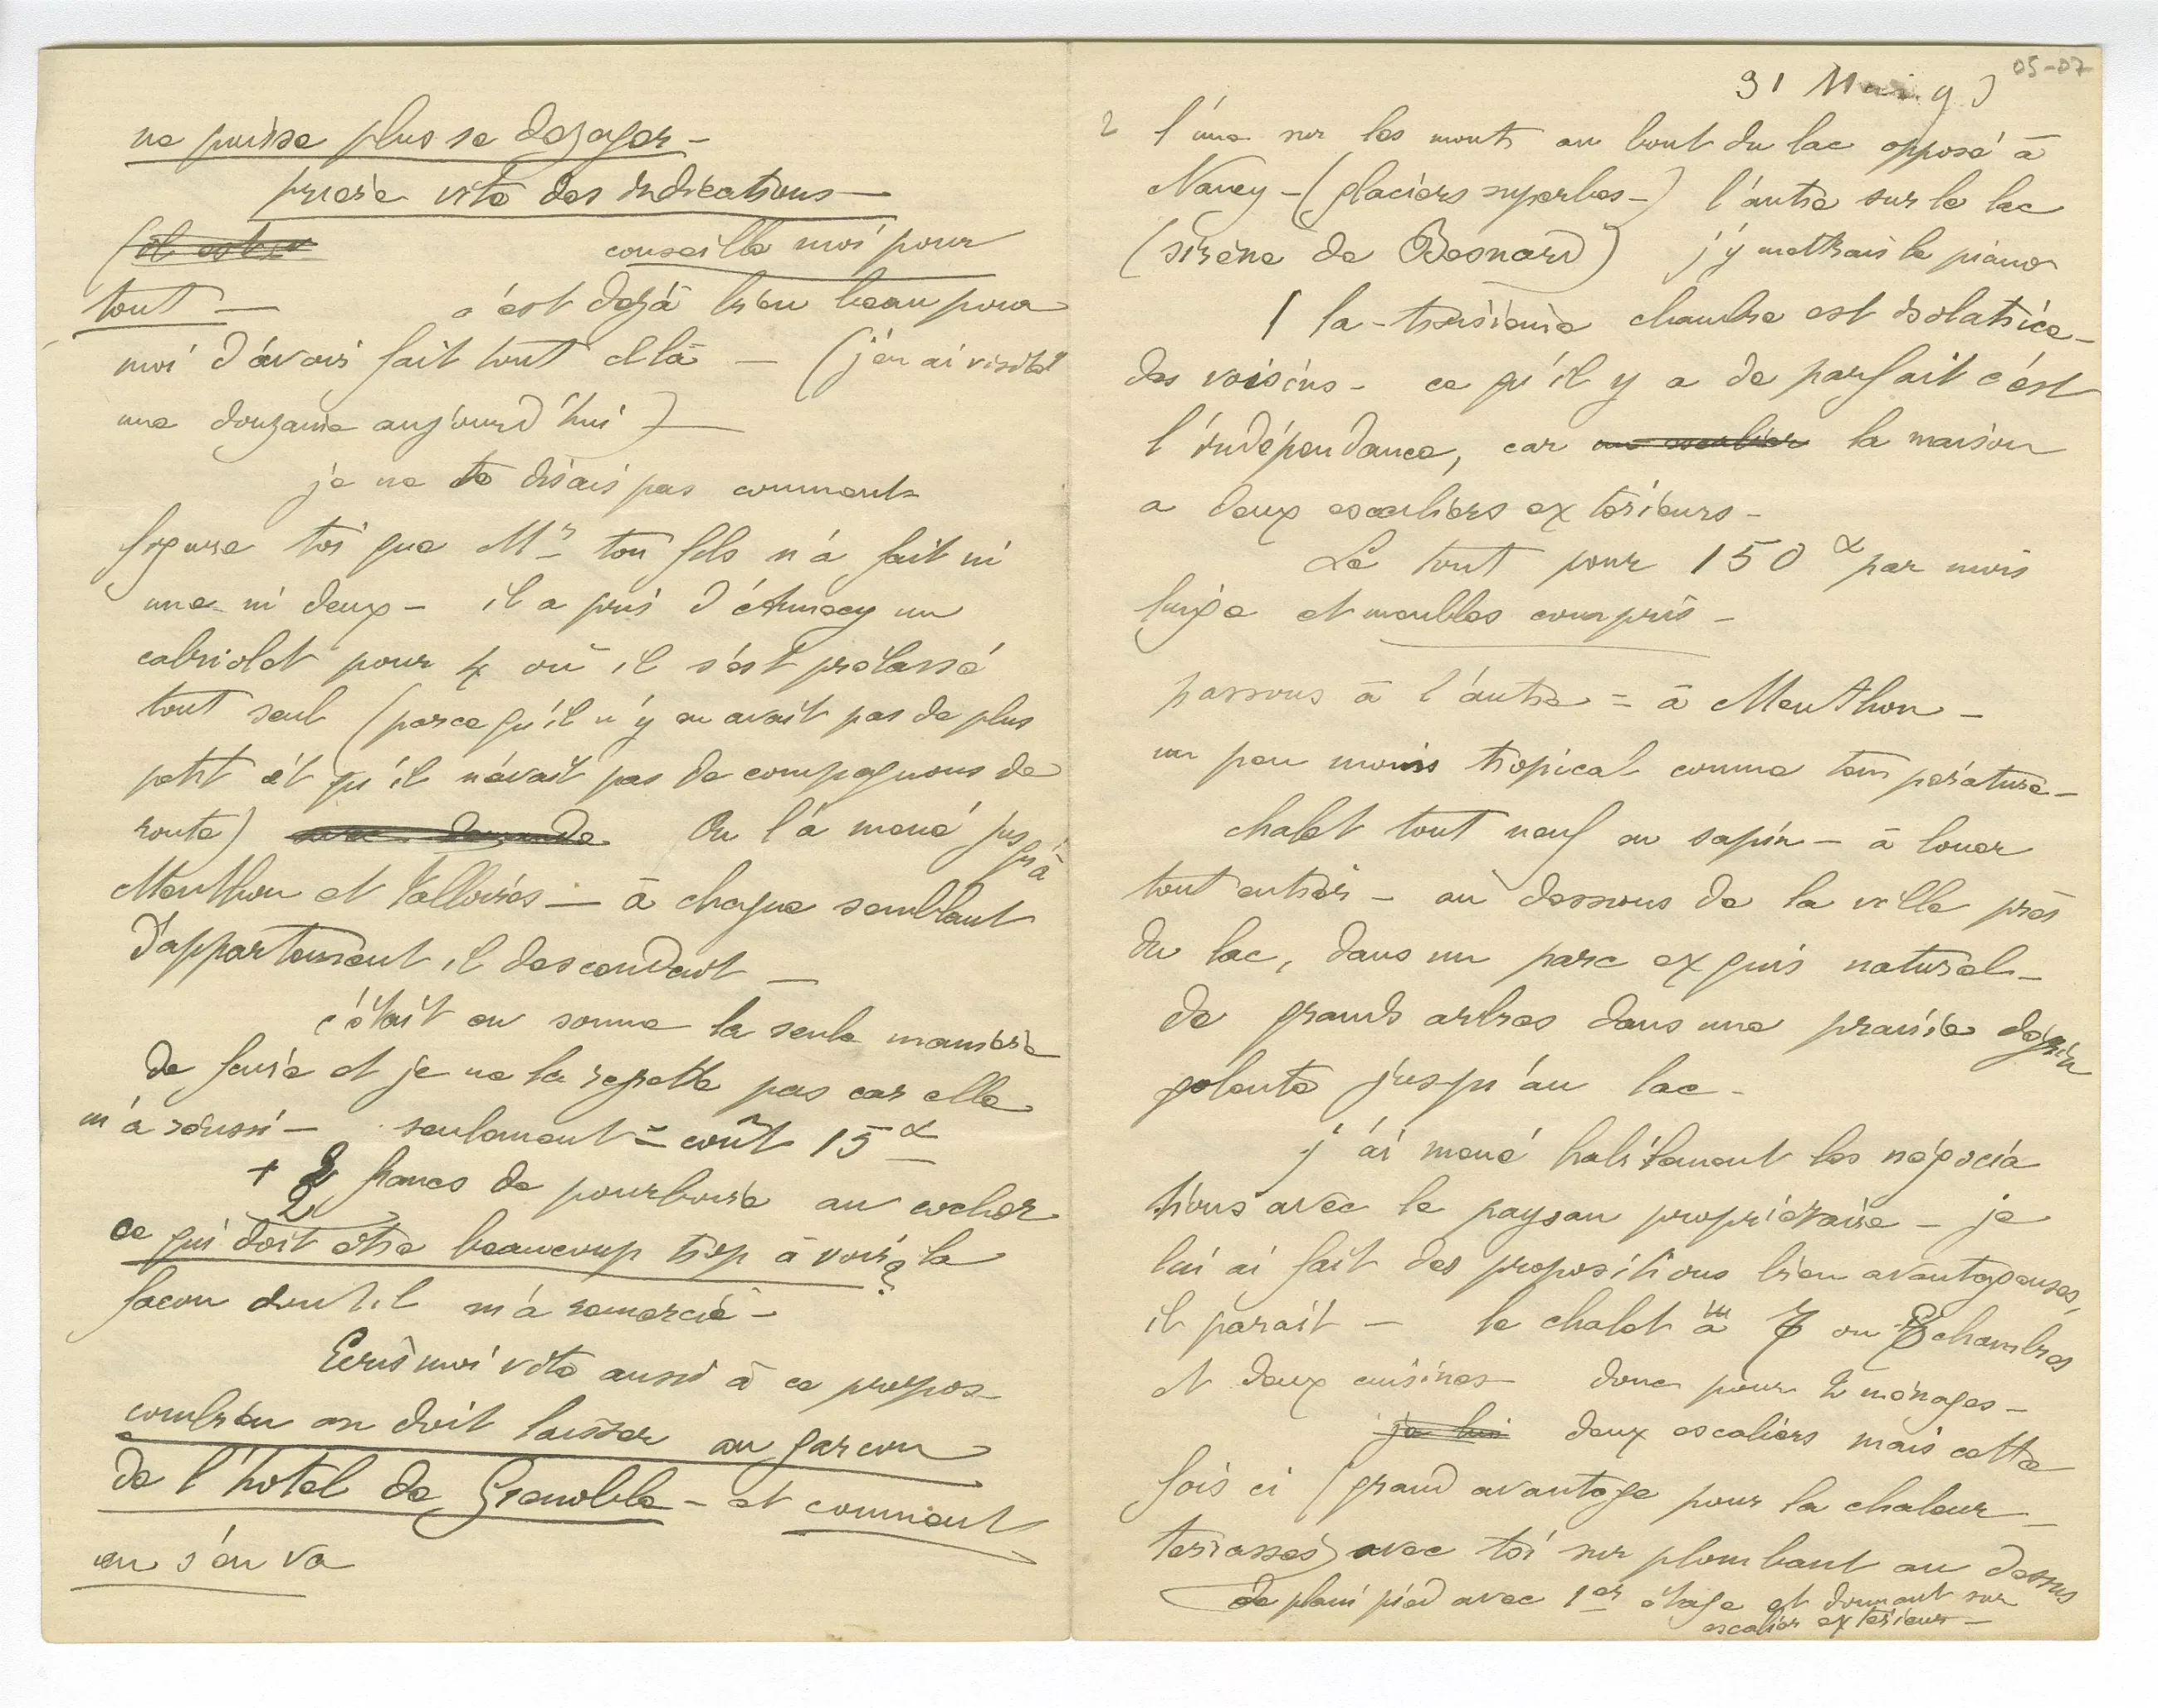 ne puisse plus se dégager –
précise vite des indications –
conseille moi pour
tout – c'est dejà bien beau pour
moi d'avoir fait tout cela – (j'en ai visité
une douzaine aujourd'hui) –
je ne te disais pas comment
figure toi que Mr ton fils n'a fait ni
une ni deux – il a pris d'Annecy un
cabriolet pour 4 où il s'est prélassé
tout seul (parce qu'il n'y en avait pas de plus
petit et qu'il n'avait pas de compagnons de
route) On l'a mené jusqu'à
Menthon et Talloires – à chaque semblant
d'appartement il descendait –
c'était en somme la seule manière
de faire et je ne la regrette pas car elle
m'a réussi – seulement = coût 15
+ 2 francs de pourboire au cocher
2
ce qui doit être beaucoup trop à voir la
façon dont il m'a remercié – ?
Ecris moi vite aussi à ce propos
combien on doit laisser au garçon
de l'hotel de Grenoble – et comment
on s'en va
05-07
31 Mai 93
2 l'une sur les monts au bout du lac opposé à
Nancy – (glaciers superbes –) l'autre sur le lac
(sirène de Besnard) j'y mettrais le piano
la troisième chambre est isolatrice
des voisins – ce qu'il y a de parfait c'est
l'indépendance, car la maison
a deux escaliers extérieurs –
Le tout pour 150 par mois
linge et meubles compris –
passons à l'autre = à Menthon –
un peu moins tropical comme température –
chalet tout neuf en sapin – à louer
tout entier – au dessous de la ville près
du lac, dans un parc exquis naturel –
de grands arbres dans une prairie dégrin
golante jusqu'au lac –
j'ai mené habilement les négocia
tions avec le paysan propriétaire – je
lui ai fait des propositions bien avantageuses,
il parait – le chalet a 7 ou 8 chambres
et deux cuisines – donc pour 2 ménages –
je lui deux escaliers mais cette
fois ci (grand avantage pour la chaleur –
terrasses) avec toi surplombant au dessus
de plain pied avec 1er étage et donnant sur
escalier extérieur –